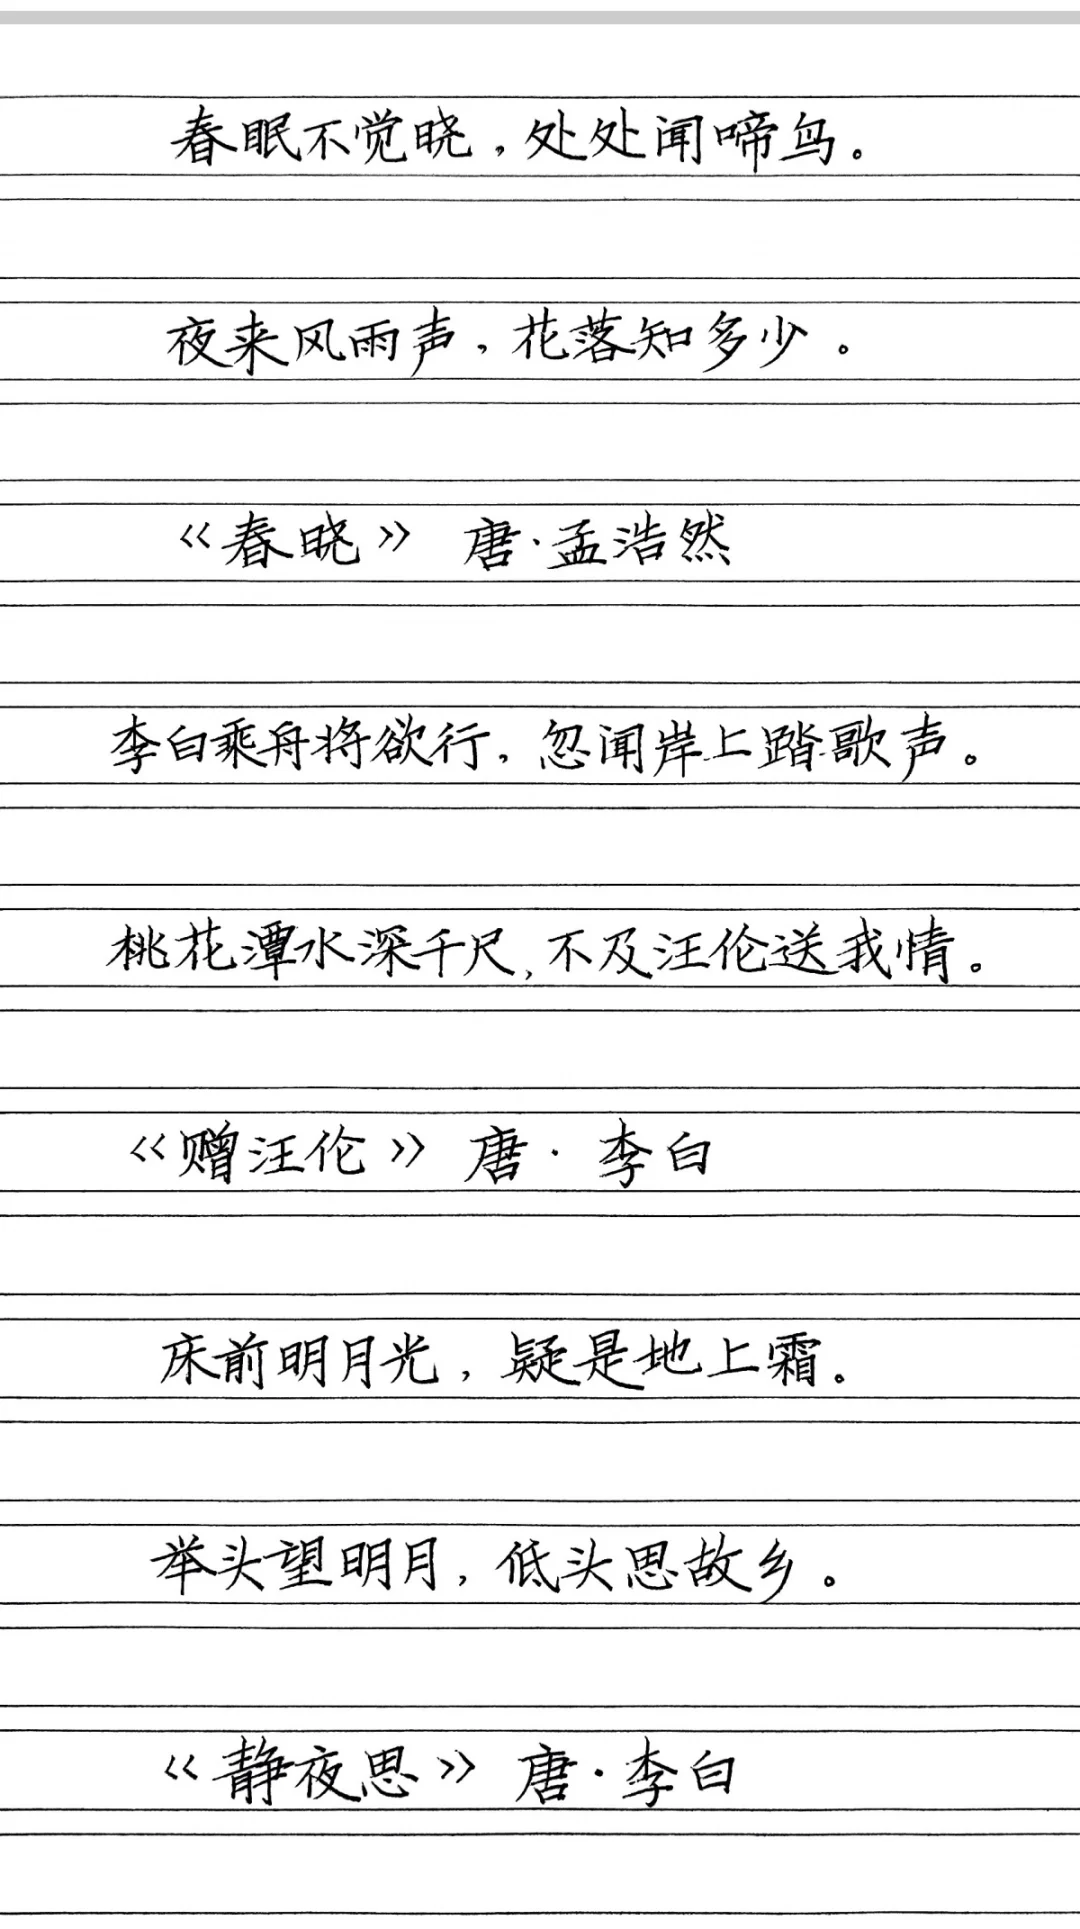 春眠不觉晓，处处闻啼鸟。
夜来风雨声，花落知多少。
《春晓》 唐·孟浩然
李白乘舟将欲行，忽闻岸上踏歌声。
桃花潭水深千尺，不及汪伦送我情。
《赠汪伦》 唐·李白
床前明月光，疑是地上霜。
举头望明月，低头思故乡。
《静夜思》 唐·李白